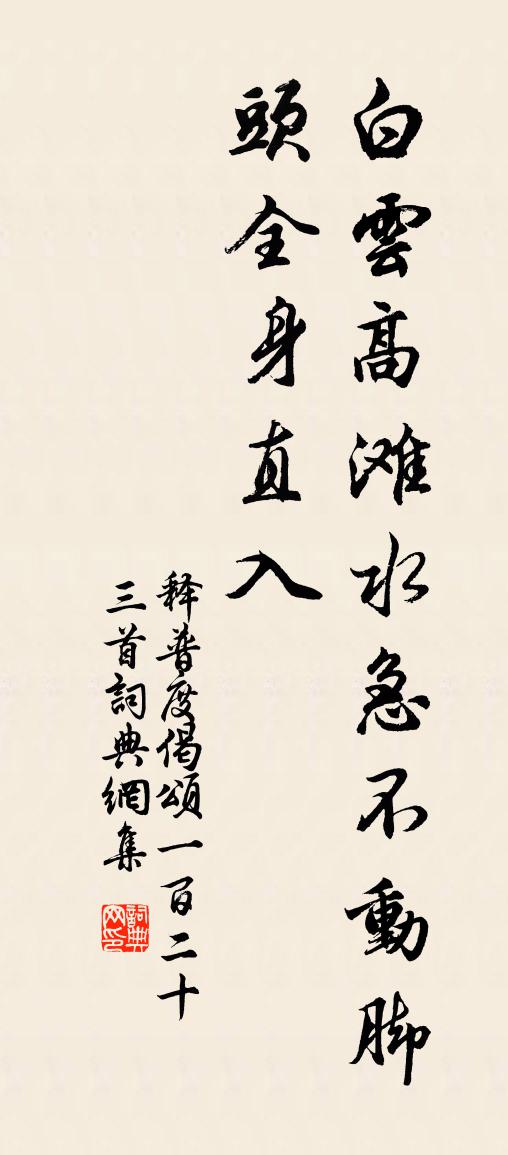 白雲高滩水急不動脚
頭全身直入
释普度偈頌一百二十
三首詞典網集
詞典
网印